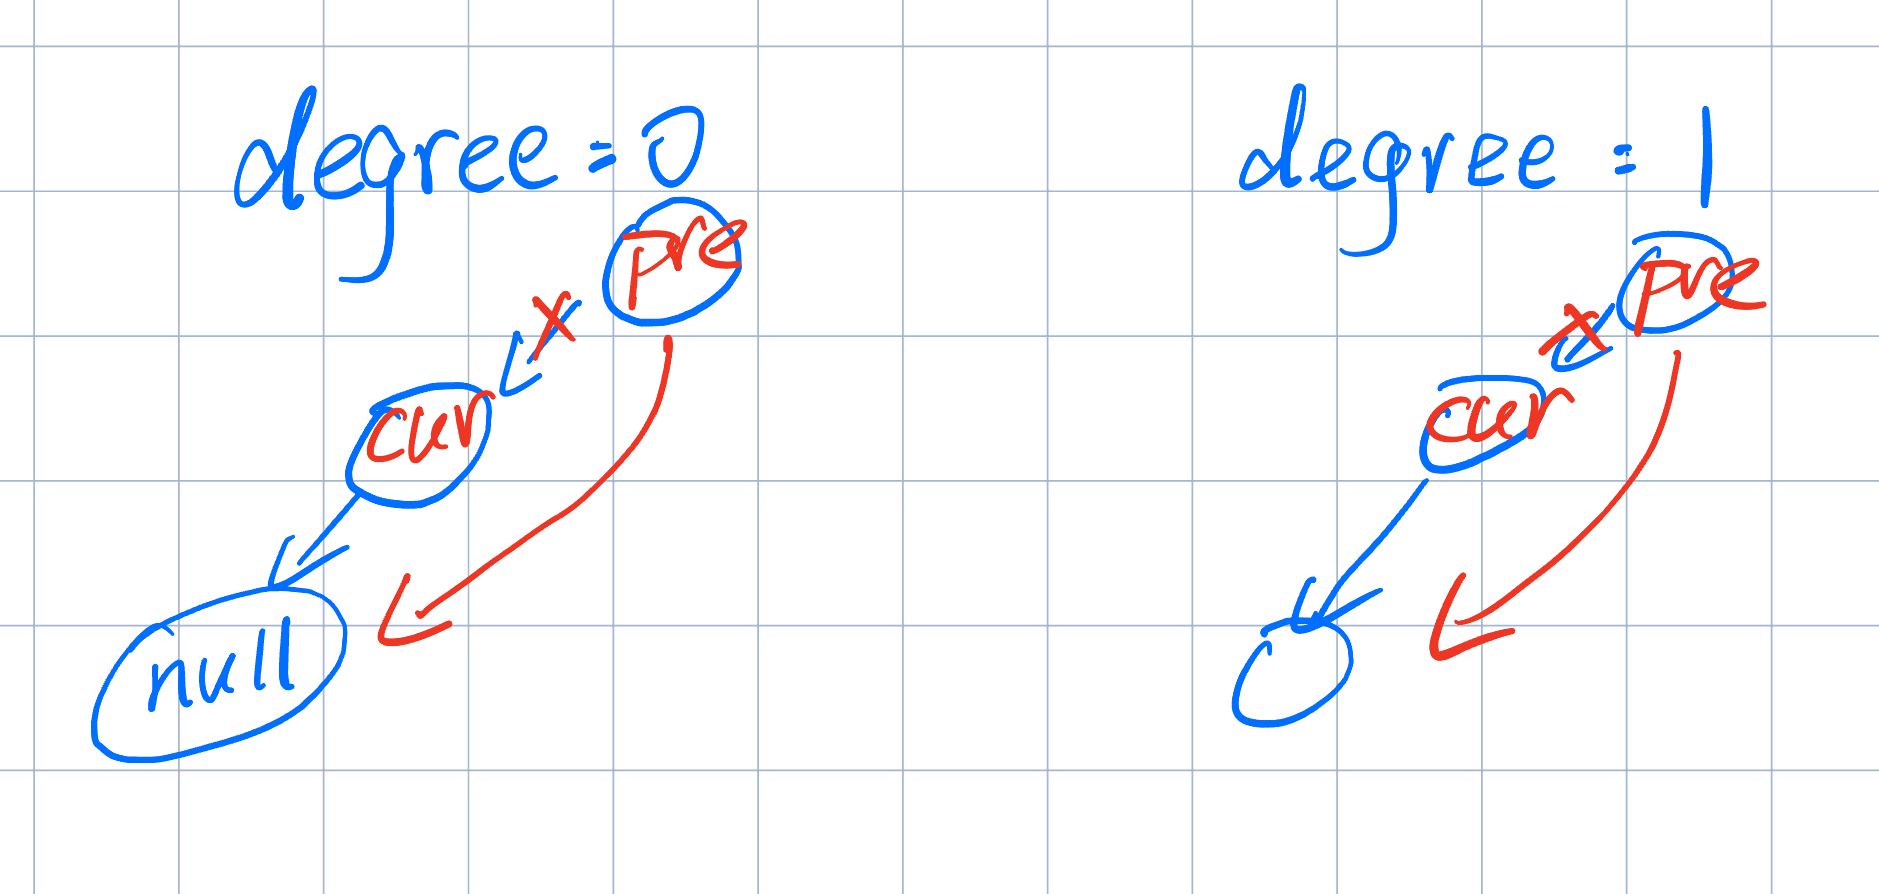 degree = 0
pre
cur
null
degree = 1
pre
cur